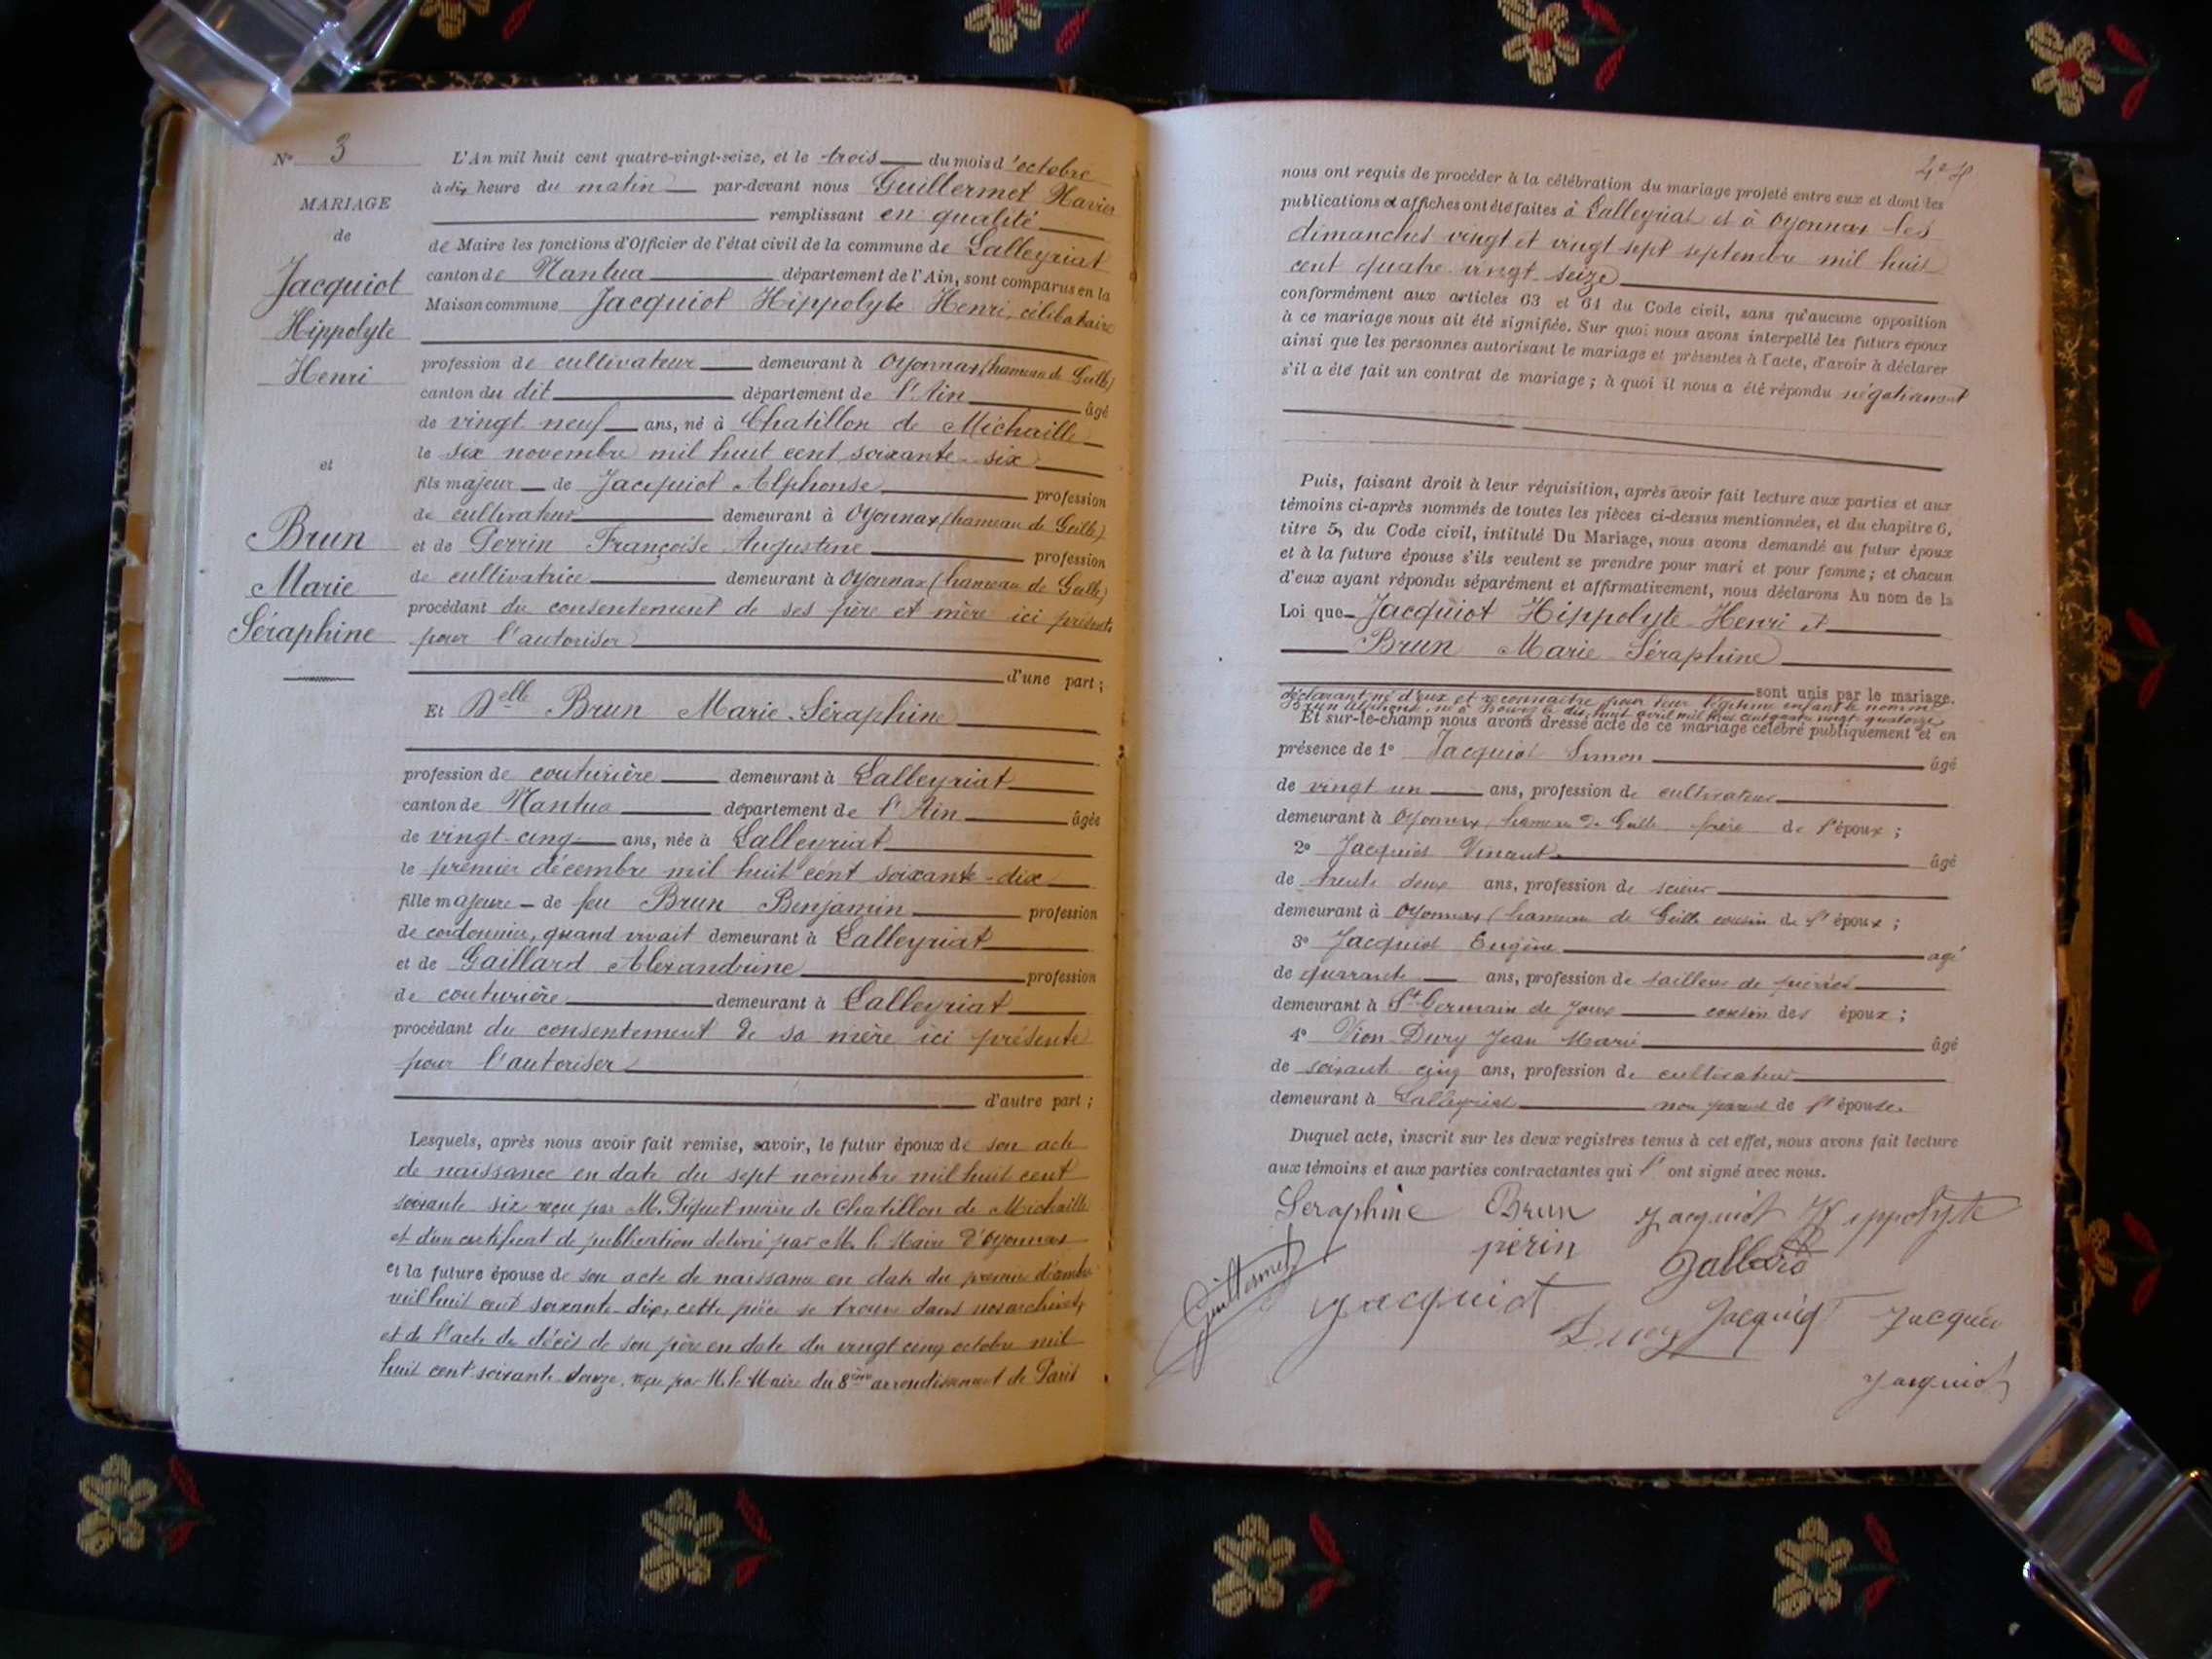 N° 3
MARIAGE
de
Jacquiot
Hippolyte
Henri
et
Brun
Marie
Séraphine
L'An mil huit cent quatre-vingt-seize, et le trois du mois d'octobre
à dix heure du matin par-devant nous Guillermet Xavier
remplissant en qualité
de Maire les fonctions d'Officier de l'état civil de la commune de Lalleyriat
canton de Nantua département de l'Ain, sont comparus en la
Maison commune Jacquiot Hippolyte Henri, célibataire
profession de cultivateur demeurant à Oyonnax (hameau de Geilles)
canton du dit département de l'Ain âgé
de vingt neuf ans, né à Chatillon de Michaille
le six novembre mil huit cent soixante-six
fils majeur de Jacquiot Alphonse profession
de cultivateur demeurant à Oyonnax (hameau de Geilles)
et de Perrin Françoise Augustine profession
de cultivatrice demeurant à Oyonnax (hameau de Geilles)
procédant du consentement de ses père et mère ici présents
pour l'autoriser
d'une part;
Et Delle Brun Marie Séraphine
profession de couturière demeurant à Lalleyriat
canton de Nantua département de l'Ain âgée
de vingt-cinq ans, née à Lalleyriat
le premier décembre mil huit cent soixante-dix
fille majeure de feu Brun Benjamin profession
de cordonnier, quand vivait demeurant à Lalleyriat
et de Gaillard Alexandrine profession
de couturière demeurant à Lalleyriat
procédant du consentement de sa mère ici présente
pour l'autoriser
d'autre part;
Lesquels, après nous avoir fait remise, savoir, le futur époux de son acte
de naissance en date du sept novembre mil huit cent
soixante six reçu par M. Piquet maire de Chatillon de Michaille
et d'un certificat de publication délivré par M. le Maire d'Oyonnax
et la future épouse de son acte de naissance en date du premier décembre
mil huit cent soixante-dix, cette pièce se trouve dans nos archives,
et de l'acte de décès de son père en date du vingt cinq octobre mil
huit cent soixante douze, reçu par M. le Maire du 8ème arrondissement de Paris
nous ont requis de procéder à la célébration du mariage projeté entre eux et dont les
publications et affiches ont été faites à Lalleyriat et à Oyonnax les
dimanches vingt et vingt sept septembre mil huit
cent quatre vingt-seize
conformément aux articles 63 et 64 du Code civil, sans qu'aucune opposition
à ce mariage nous ait été signifiée. Sur quoi nous avons interpellé les futurs époux
ainsi que les personnes autorisant le mariage et présentes à l'acte, d'avoir à déclarer
s'il a été fait un contrat de mariage; à quoi il nous a été répondu négativement
Puis, faisant droit à leur réquisition, après avoir fait lecture aux parties et aux
témoins ci-après nommés de toutes les pièces ci-dessus mentionnées, et du chapitre 6,
titre 5, du Code civil, intitulé Du Mariage, nous avons demandé au futur époux
et à la future épouse s'ils veulent se prendre pour mari et pour femme; et chacun
d'eux ayant répondu séparément et affirmativement, nous déclarons Au nom de la
Loi que Jacquiot Hippolyte Henri et
Brun Marie Séraphine
sont unis par le mariage.
déclarant né d'eux et reconnaitre pour leur légitime enfant le nommé
Brun Alphonse, né à le dix huit avril mil huit cent quatre vingt quatorze
Et sur-le-champ nous avons dressé acte de ce mariage célébré publiquement et en
présence de 1° Jacquiot Simon âgé
de vingt un ans, profession de cultivateur
demeurant à Oyonnax, hameau de Geilles frère de l'époux;
2° Jacquiot Vincent âgé
de trente deux ans, profession de scieur
demeurant à Oyonnax (hameau de Geilles cousin de l'époux;
3° Jacquiot Eugène agé
de quarante ans, profession de tailleur de pierres
demeurant à St Germain de Joux cousin des époux;
4° Vion-Dury Jean Marie âgé
de soixante cinq ans, profession de cultivateur
demeurant à Lalleyriat non parent de l'épouse.
Duquel acte, inscrit sur les deux registres tenus à cet effet, nous avons fait lecture
aux témoins et aux parties contractantes qui l'ont signé avec nous.
Seraphine Brun Jacquiot Hippolyte
perin
Guillermet Jacquiot
Dury Jacquiot Jacquiot
Jacquiot